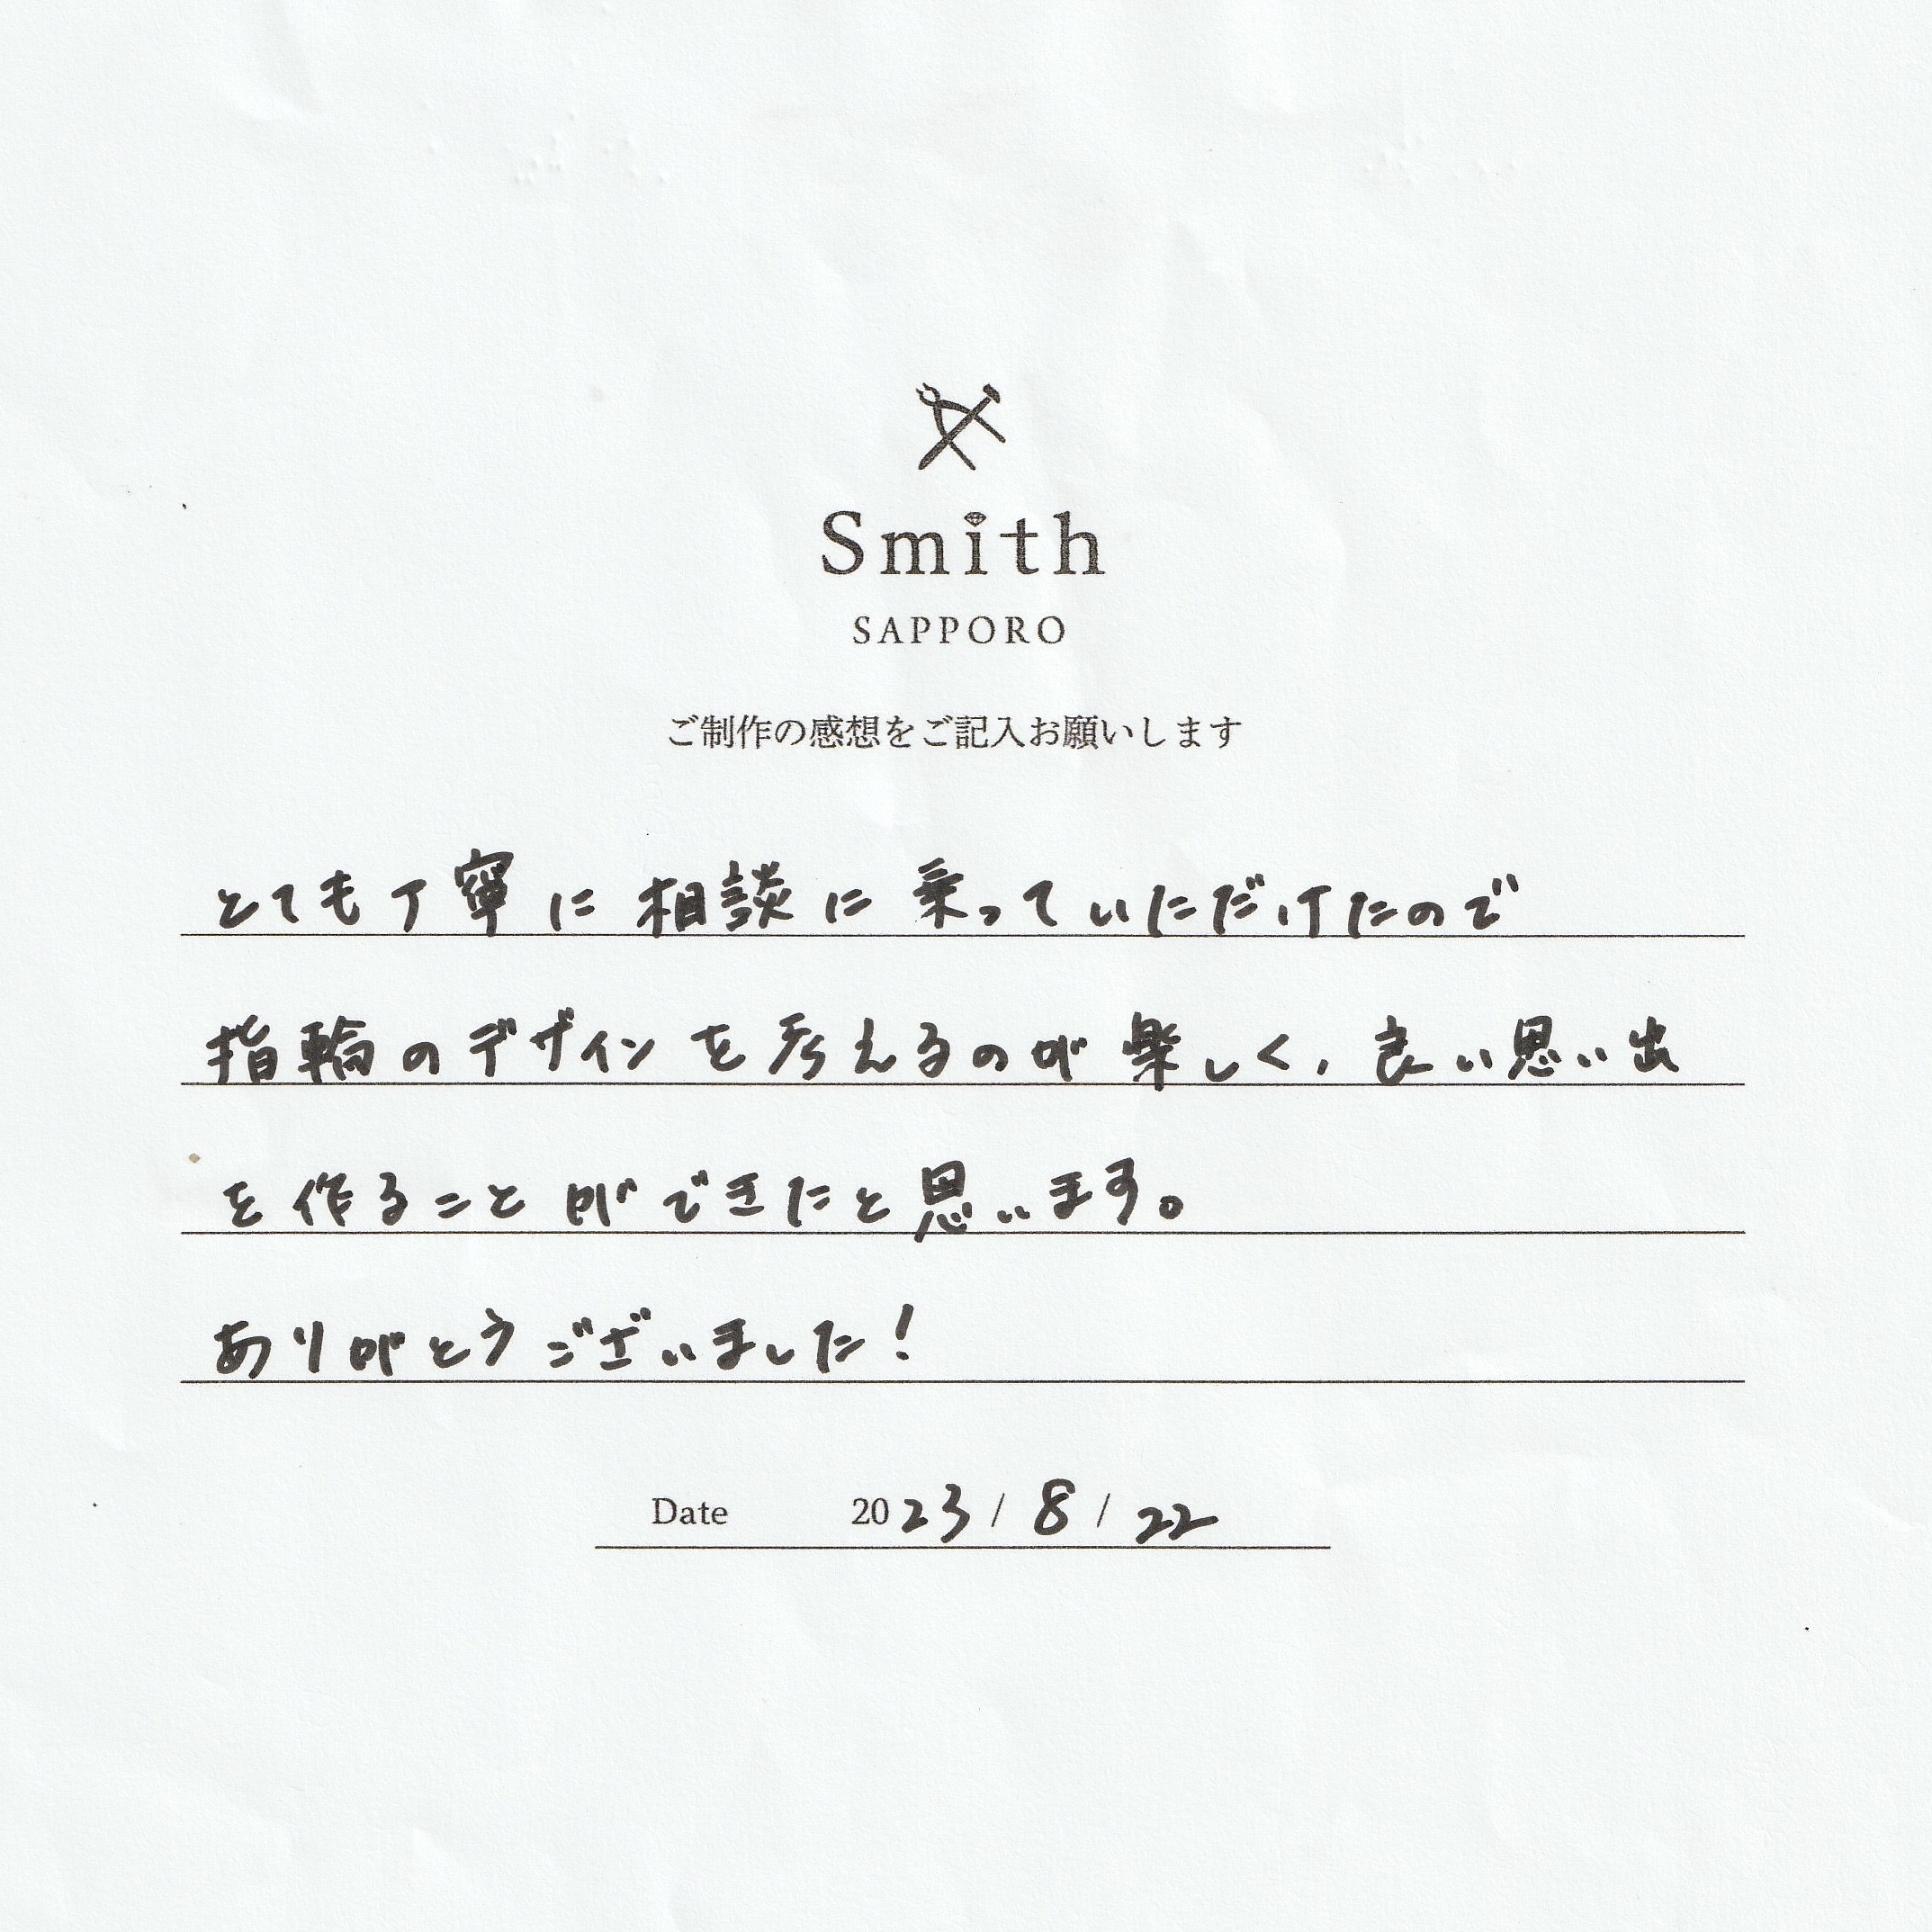 Smith
SAPPORO
ご制作の感想をご記入お願いします
とても丁寧に相談に乗っていただけたので
指輪のデザインを考えるのが楽しく、良い思い出
を作ることができたと思います。
ありがとうございました!
Date 2023 / 8 / 22